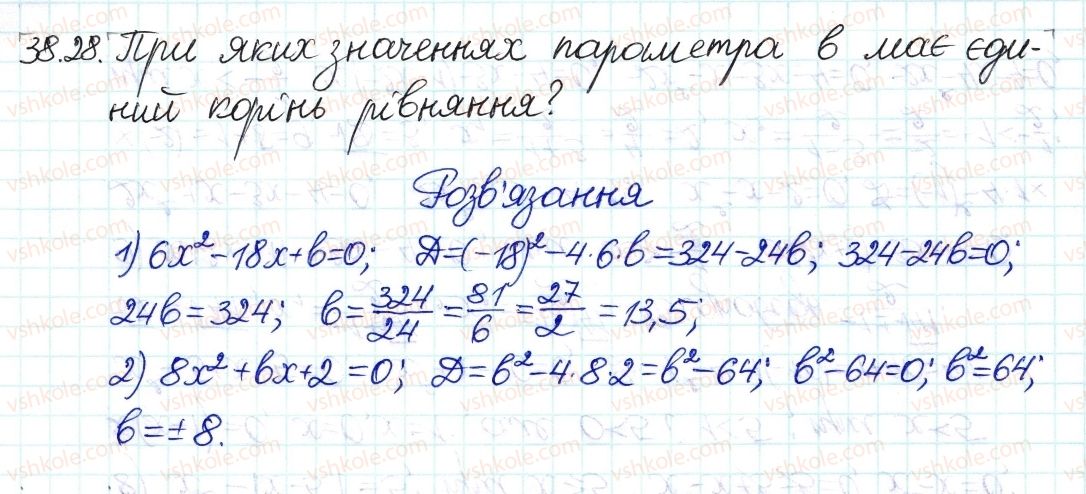 38.28. При яких значеннях параметра в має єди-
ний корінь рівняння?
Розв'язання
1) 6x² - 18x + в = 0; Д = (-18)² - 4·6·в = 324 - 24в; 324 - 24в = 0;
24в = 324; в = 324/24 = 81/6 = 27/2 = 13,5;
2) 8x² + вx + 2 = 0; Д = в² - 4·8·2 = в² - 64; в² - 64 = 0; в² = 64;
в = ± 8.